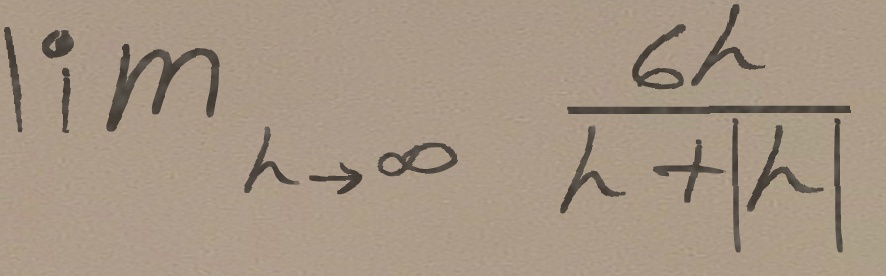 lim h→∞ 6h / h + |h|